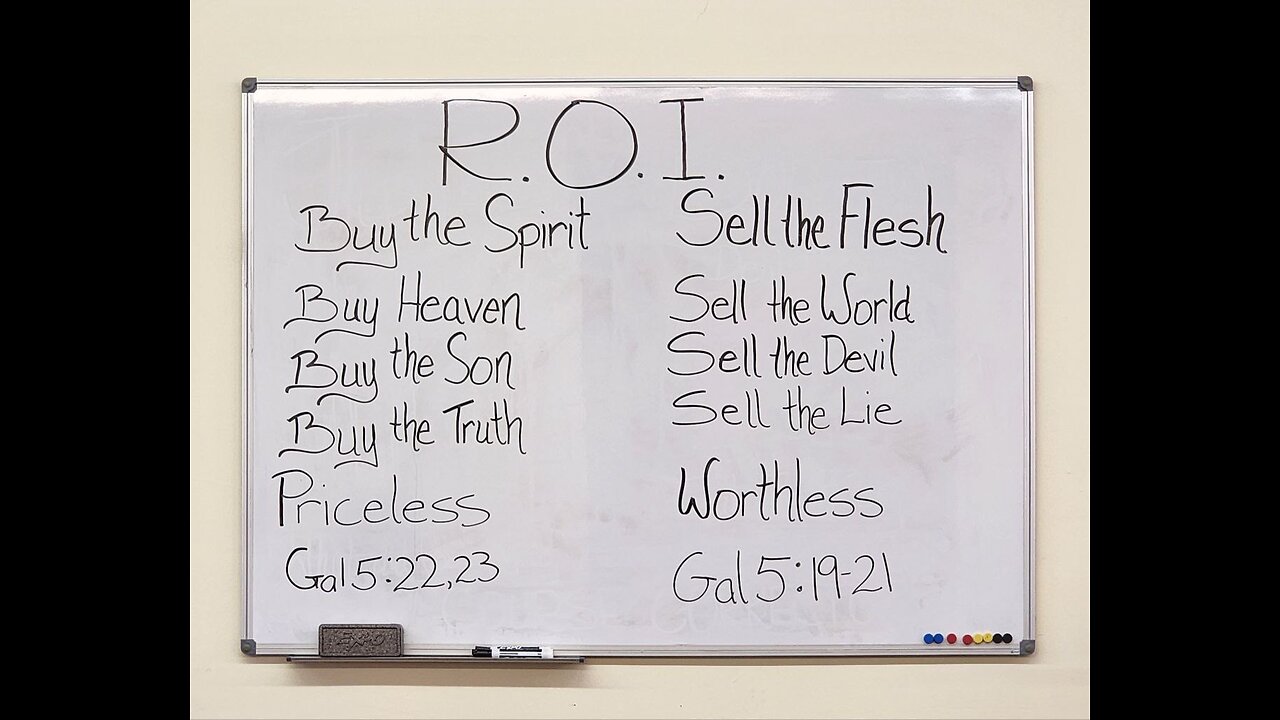 R.O.I.
Buy the Spirit
Buy Heaven
Buy the Son
Buy the Truth
Priceless
Gal 5:22,23
Sell the Flesh
Sell the World
Sell the Devil
Sell the Lie
Worthless
Gal 5:19-21
EXPO
EXPO